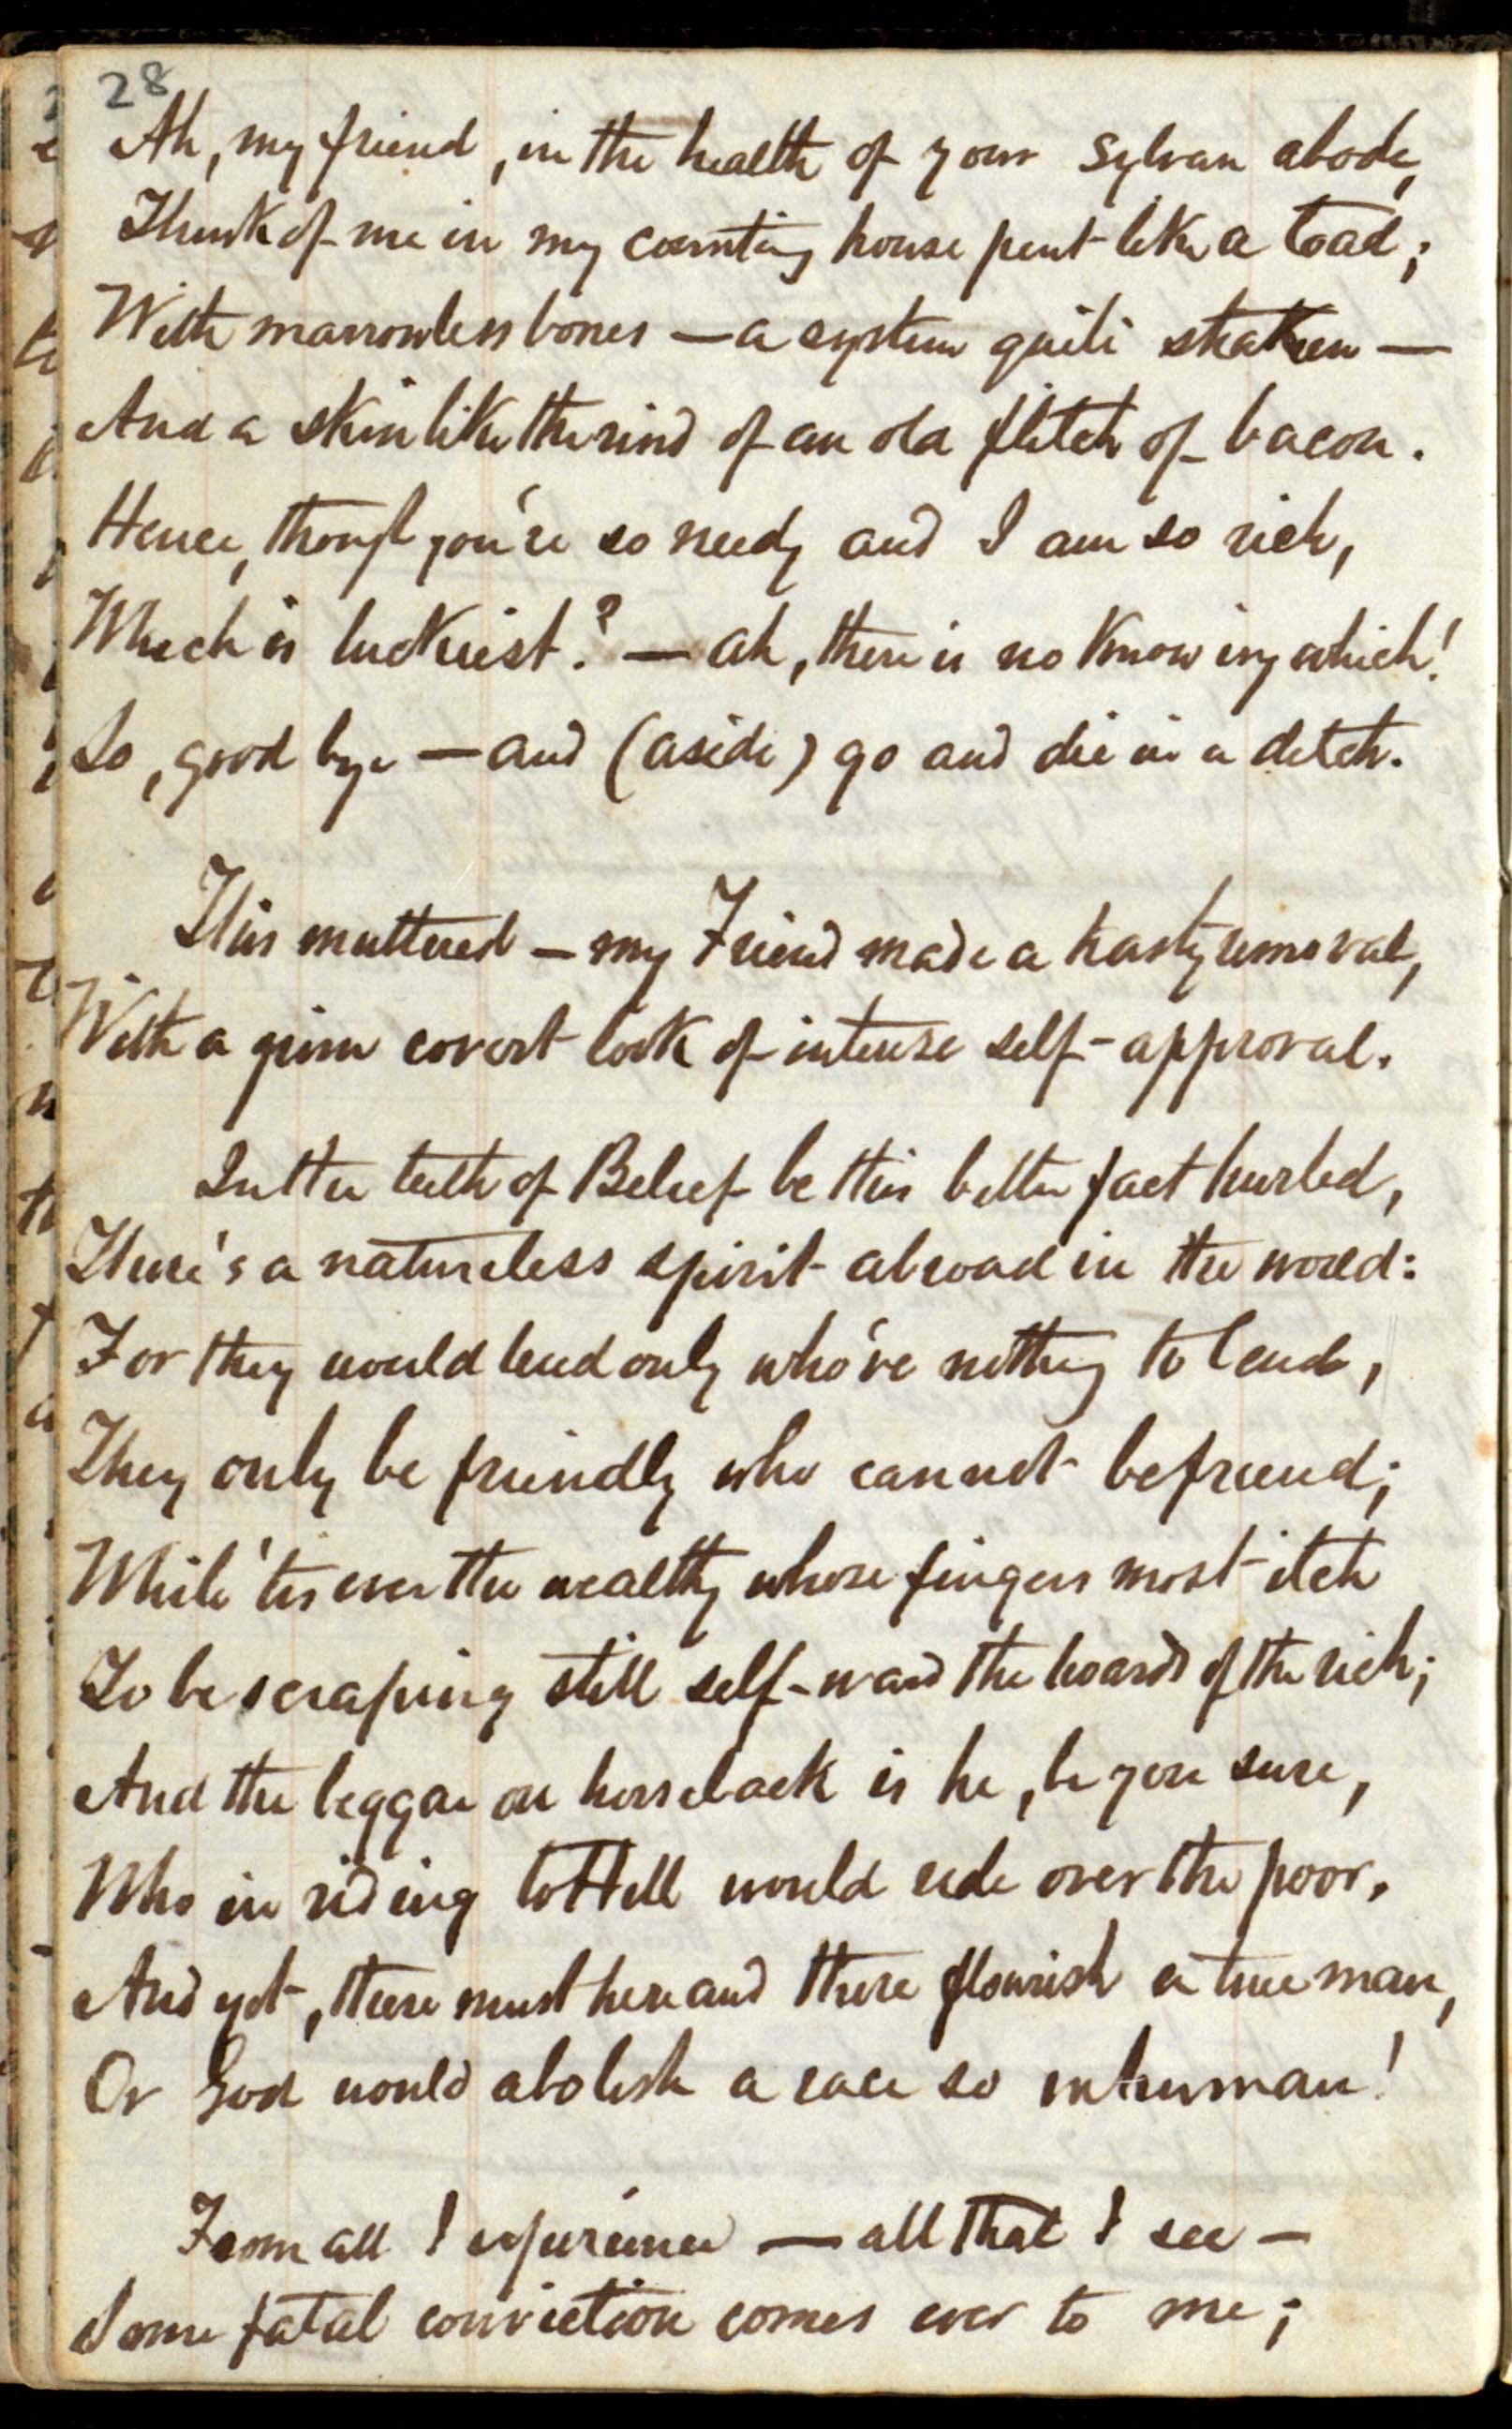 28
Ah, my friend, in the health of your sylvan abode,
Think of me in my counting house pent like a toad;
With marrowless bones — a system quite shaken —
And a skin like the rind of an old flitch of bacon.
Hence, though you're so needy and I am so rich,
Which is luckiest? — ah, there is no knowing which!
So, good bye — and (aside) go and die in a ditch.
This muttered — my Friend made a hasty removal,
With a grim covert look of intense self-approval.
In the teeth of Belief be this bitter fact hurled,
There's a natureless spirit abroad in the world:
For they would lend only who've nothing to lend,
They only be friendly who cannot befriend;
While 'tis ever the wealthy whose fingers most itch
To be scraping still self-ward the hoards of the rich;
And the beggar on horseback is he, be you sure,
Who in riding to Hell would ride over the poor.
And yet, there must here and there flourish a true man,
Or God would abolish a race so inhuman!
From all I experience — all that I see —
Some fatal conviction comes ever to me;